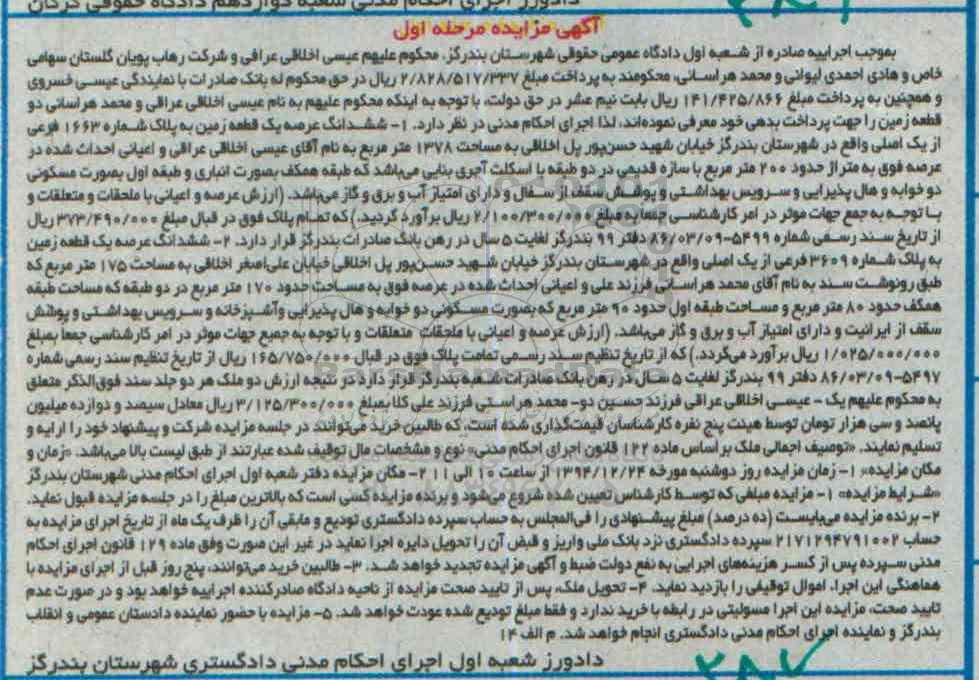 دادورز اجرای احکام مدنی شعبه دوازدهم دادگاه حقوقی گرگان
آگهی مزایده مرحله اول
بموجب اجراییه صادره از شعبه اول دادگاه عمومی حقوقی شهرستان بندرگز، محکوم علیهم عیسی اخلاقی عراقی و شرکت رهاب پویان گلستان سهامی
خاص و هادی احمدی لیوانی و محمد هراسانی، محکومند به پرداخت مبلغ ۲/۸۲۸/۵۱۷/۳۳۷ ریال در حق محکوم له بانک صادرات با نمایندگی عیسی خسروی
و همچنین به پرداخت مبلغ ۱۴۱/۴۲۵/۸۶۶ ریال بابت نیم عشر در حق دولت، با توجه به اینکه محکوم علیهم به نام عیسی اخلاقی عراقی و محمد هراسانی دو
قطعه زمین را جهت پرداخت بدهی خود معرفی نموده‌اند، لذا اجرای احکام مدنی در نظر دارد. ۱- ششدانگ عرصه یک قطعه زمین به پلاک شماره ۱۶۶۳ فرعی
از یک اصلی واقع در شهرستان بندرگز خیابان شهید حسن‌پور پل اخلاقی به مساحت ۱۳۷۸ متر مربع به نام آقای عیسی اخلاقی عراقی و اعیانی احداث شده در
عرصه فوق به متراژ حدود ۲۰۰ متر مربع با سازه قدیمی در دو طبقه با اسکلت آجری بنایی می‌باشد که طبقه همکف بصورت انباری و طبقه اول بصورت مسکونی
دو خوابه و هال پذیرایی و سرویس بهداشتی و پوشش سقف از سفال و دارای امتیاز آب و برق و گاز می‌باشد. (ارزش عرصه و اعیانی با ملحقات و متعلقات و
با توجه به جمع جهات موثر در امر کارشناسی جمعا به مبلغ ۲/۱۰۰/۳۰۰/۰۰۰ ریال برآورد گردید.) که تمام پلاک فوق در قبال مبلغ ۳۷۳/۴۹۰/۰۰۰ ریال
از تاریخ سند رسمی شماره ۵۴۹۹-۸۶/۰۳/۰۹ دفتر ۹۹ بندرگز لغایت ۵ سال در رهن بانک صادرات بندرگز قرار دارد. ۲- ششدانگ عرصه یک قطعه زمین
به پلاک شماره ۳۶۰۹ فرعی از یک اصلی واقع در شهرستان بندرگز خیابان شهید حسن‌پور پل اخلاقی خیابان علی‌اصغر اخلاقی به مساحت ۱۷۵ متر مربع که
طبق رونوشت سند به نام آقای محمد هراسانی فرزند علی و اعیانی احداث شده در عرصه فوق به مساحت حدود ۱۷۰ متر مربع در دو طبقه که مساحت طبقه
همکف حدود ۸۰ متر مربع و مساحت طبقه اول حدود ۹۰ متر مربع که بصورت مسکونی دو خوابه و هال پذیرایی و آشپزخانه و سرویس بهداشتی و پوشش
سقف از ایرانیت و دارای امتیاز آب و برق و گاز می‌باشد. (ارزش عرصه و اعیانی با ملحقات متعلقات و با توجه به جمیع جهات موثر در امر کارشناسی جمعا بمبلغ
۱/۰۲۵/۰۰۰/۰۰۰ ریال برآورد می‌گردد.) که از تاریخ تنظیم سند رسمی تمامت پلاک فوق در قبال ۱۶۵/۷۵۰/۰۰۰ ریال از تاریخ تنظیم سند رسمی شماره
۵۴۹۷-۸۶/۰۳/۰۹ دفتر ۹۹ بندرگز لغایت ۵ سال در رهن بانک صادرات شعبه بندرگز قرار دارد در نتیجه ارزش دو ملک هر دو جلد سند فوق‌الذکر متعلق
به محکوم علیهم یک - عیسی اخلاقی عراقی فرزند حسین دو- محمد هراستی فرزند علی کلا بمبلغ ۳/۱۲۵/۳۰۰/۰۰۰ ریال معادل سیصد و دوازده میلیون
پانصد و سی هزار تومان توسط هیئت پنج نفره کارشناسان قیمت‌گذاری شده است، که طالبین خرید می‌توانند در جلسه مزایده شرکت و پیشنهاد خود را ارایه و
تسلیم نمایند. «توصیف اجمالی ملک بر اساس ماده ۱۲۲ قانون اجرای احکام مدنی» نوع و مشخصات مال توقیف شده عبارتند از طبق لیست بالا می‌باشد. «زمان و
مکان مزایده» ۱- زمان مزایده روز دوشنبه مورخه ۱۳۹۴/۱۲/۲۴ از ساعت ۱۰ الی ۱۱ ۲- مکان مزایده دفتر شعبه اول اجرای احکام مدنی شهرستان بندرگز
«شرایط مزایده» ۱- مزایده مبلغی که توسط کارشناس تعیین شده شروع می‌شود و برنده مزایده کسی است که بالاترین مبلغ را در جلسه مزایده قبول نماید.
۲- برنده مزایده می‌بایست (ده درصد) مبلغ پیشنهادی را فی‌المجلس به حساب سپرده دادگستری تودیع و مابقی آن را ظرف یک ماه از تاریخ اجرای مزایده به
حساب ۲۱۷۱۲۹۴۷۹۱۰۰۲ سپرده دادگستری نزد بانک ملی واریز و قبض آن را تحویل دایره اجرا نماید در غیر این صورت وفق ماده ۱۲۹ قانون اجرای احکام
مدنی سپرده پس از کسر هزینه‌های اجرایی به نفع دولت ضبط و آگهی مزایده تجدید خواهد شد. ۳- طالبین خرید می‌توانند، پنج روز قبل از اجرای مزایده با
هماهنگی این اجرا، اموال توقیفی را بازدید نماید. ۴- تحویل ملک، پس از تایید صحت مزایده از ناحیه دادگاه صادرکننده اجراییه خواهد بود و در صورت عدم
تایید صحت، مزایده این اجرا مسولیتی در رابطه با خرید ندارد و فقط مبلغ تودیع شده عودت خواهد شد. ۵- مزایده با حضور نماینده دادستان عمومی و انقلاب
بندرگز و نماینده اجرای احکام مدنی دادگستری انجام خواهد شد. م الف ۱۴
دادورز شعبه اول اجرای احکام مدنی دادگستری شهرستان بندرگز
۲۸۷